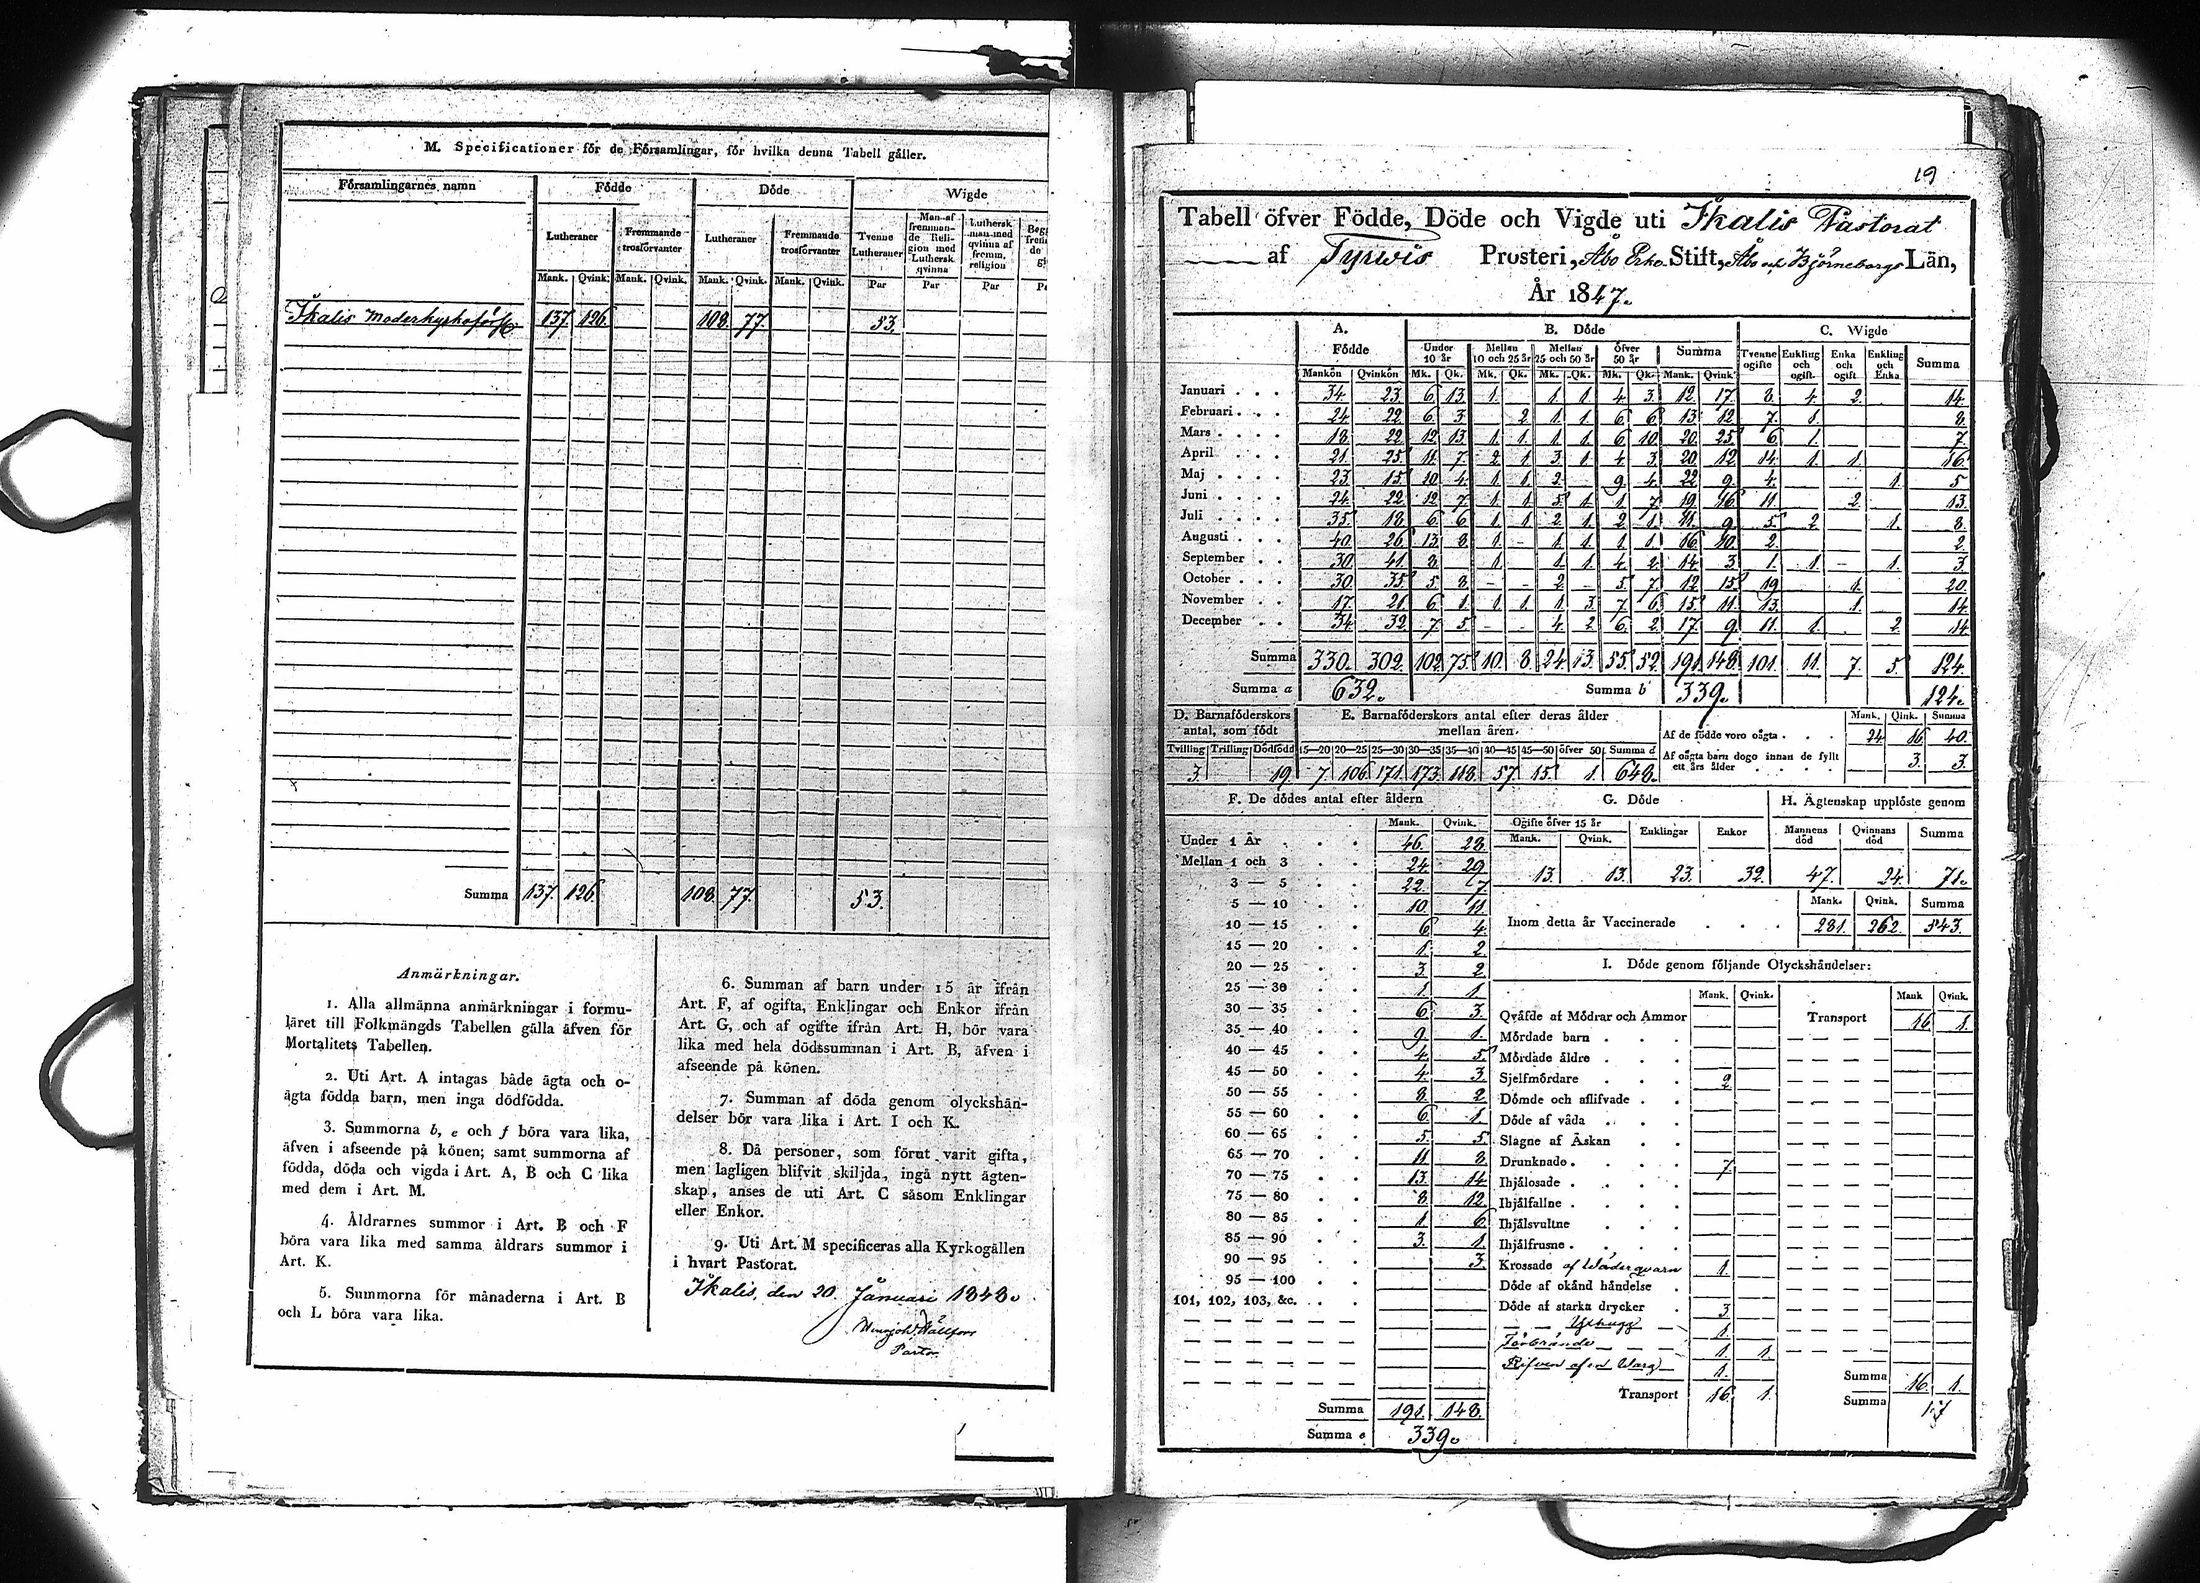 M. Specificationer för de Församlingar, för hvilka denna Tabell gäller.
Församlingarnes namn | Födde | Döde | Wigde
Lutheraner | Fremmande trosförvanter | Lutheraner | Fremmande trosförvanter | Tvenne Lutheraner | Man af fremmande Religion med Luthersk qvinna | Luthersk man med qvinna af fremm. religion
Mank. | Qvink. | Mank. | Qvink. | Mank. | Qvink. | Mank. | Qvink. | Par | Par | Par
Ikalis Moderkyrkoförs. 137. 126. 108. 77. 53.
Summa 137. 126. 108. 77. 53.
Anmärkningar.
1. Alla allmänna anmärkningar i formu-
läret till Folkmängds Tabellen gälla äfven för
Mortalitets Tabellen.
2. Uti Art. A intagas både ägta och o-
ägta födda barn, men inga dödfödda.
3. Summorna b, e och f böra vara lika,
äfven i afseende på könen; samt summorna af
födda, döda och vigda i Art. A, B och C lika
med dem i Art. M.
4. Åldrarnes summor i Art. B och F
böra vara lika med samma åldrars summor i
Art. K.
5. Summorna för månaderna i Art. B
och L böra vara lika.
6. Summan af barn under 15 år ifrån
Art. F, af ogifta, Enklingar och Enkor ifrån
Art. G, och af ogifte ifrån Art. H, bör vara
lika med hela dödssumman i Art. B, äfven i
afseende på könen.
7. Summan af döda genom olyckshän-
delser bör vara lika i Art. I och K.
8. Då personer, som förut varit gifta,
men lagligen blifvit skiljda, ingå nytt ägten-
skap, anses de uti Art. C såsom Enklingar
eller Enkor.
9. Uti Art. M specificeras alla Kyrkogällen
i hvart Pastorat.
Ikalis, den 20 Januari 1848.
Pastor.
19
Tabell öfver Födde, Döde och Vigde uti Ikalis Pastorat
af Tyrwis Prosteri, Åbo Erke-Stift, Åbo och Björneborgs Län,
År 1847.
A. Födde | B. Döde | C. Wigde
Under 10 år | Mellan 10 och 25 år | Mellan 25 och 50 år | Öfver 50 år | Summa | Tvenne ogifte | Enkling och ogift. | Enka och ogift | Enkling och Enka | Summa
Mankön | Qvinkön | Mk. | Qk. | Mk. | Qk. | Mk. | Qk. | Mk. | Qk. | Mank. | Qvink.
Januari 34. 23. 6. 13. 1. 1. 1. 4. 3. 12. 17. 8. 4. 2. 14.
Februari 24. 22. 6. 3. 2. 1. 1. 6. 6. 13. 12. 7. 1. 8.
Mars 18. 22. 12. 13. 1. 1. 1. 1. 6. 10. 20. 25. 6. 1. 7.
April 21. 25. 11. 7. 2. 1. 3. 1. 4. 3. 20. 12. 14. 1. 1. 16.
Maj 23. 15. 10. 4. 1. 1. 2. 9. 4. 22. 9. 4. 1. 5
Juni 24. 22. 12. 7. 1. 1. 5. 1. 1. 7. 19. 16. 11. 2. 13.
Juli 35. 18. 6. 6. 1. 1. 2. 1. 2. 1. 11. 9. 5. 2. 1. 8.
Augusti 40. 26. 13. 8. 1. - 1. 1. 1. 1. 16. 10. 2. 2.
September 30. 41. 8. 1. 1. 1. 4. 2. 14. 3. 1. 1. - 1. 3.
October 30. 35. 5. 8. - - 2. - 5. 7. 12. 15. 19. 1. 20.
November 17. 21. 6. 1. 1. 1. 1. 3. 7. 6. 15. 11. 13. 1. 14.
December 34. 32. 7. 5. - - 4. 2. 6. 2. 17. 9. 11. 1. 2. 14.
Summa 330. 302. 102. 75. 10. 8. 24. 13. 55. 52. 191. 148. 101. 11. 7. 5. 124.
Summa a 632. Summa b 339. 124.
D. Barnaföderskors antal, som födt | E. Barnaföderskors antal efter deras ålder mellan åren.
Tvilling | Trilling | Dödfödd | 15—20 | 20—25 | 25—30 | 30—35 | 35—40 | 40—45 | 45—50 | öfver 50 | Summa d
3. 19. 7. 106. 171. 173. 118. 57. 15. 1. 648.
Mank. | Qink. | Summa
Af de födde voro oägta 24. 16. 40.
Af oägta barn dogo innan de fyllt ett års ålder 3. 3.
F. De dödes antal efter åldern
Mank. | Qvink.
Under 1 År 46. 28.
Mellan 1 och 3 24. 29.
3 — 5 22. 7.
5 — 10 10. 11.
10 — 15 6. 4.
15 — 20 1. 2.
20 — 25 3. 2.
25 — 30 1. 1.
30 — 35 6. 3.
35 — 40 9. 1.
40 — 45 4. 5.
45 — 50 4. 3.
50 — 55 8. 2.
55 — 60 6. 1.
60 — 65 5. 5.
65 — 70 11. 8.
70 — 75 13. 14.
75 — 80 8. 12.
80 — 85 1. 6.
85 — 90 3. 1.
90 — 95 3.
95 — 100
101, 102, 103, &c.
Summa 191. 148.
Summa e 339.
G. Döde
Ogifte öfver 15 år | Enklingar | Enkor
Mank. | Qvink.
13. 13. 23. 32.
H. Ägtenskap upplöste genom
Mannens död | Qvinnans död | Summa
47. 24. 71.
Mank. | Qvink. | Summa
Inom detta år Vaccinerade 281. 262. 543.
I. Döde genom följande Olyckshändelser:
Mank. | Qvink. | Mank | Qvink.
Qväfde af Mödrar och Ammor
Mördade barn
Mördade äldre
Sjelfmördare 2
Dömde och aflifvade
Döde af våda
Slagne af Åskan
Drunknade 7.
Ihjälosade
Ihjälfallne
Ihjälsvultne
Ihjälfrusne
Krossade af Wäderqvarn 1.
Döde af okänd händelse
Döde af starka drycker 3
Yxhugg 1.
Förbrände 1. 1.
Rifven af en Warg 1.
Transport 16. 1.
Transport 16. 1.
Summa 16. 1.
Summa 17